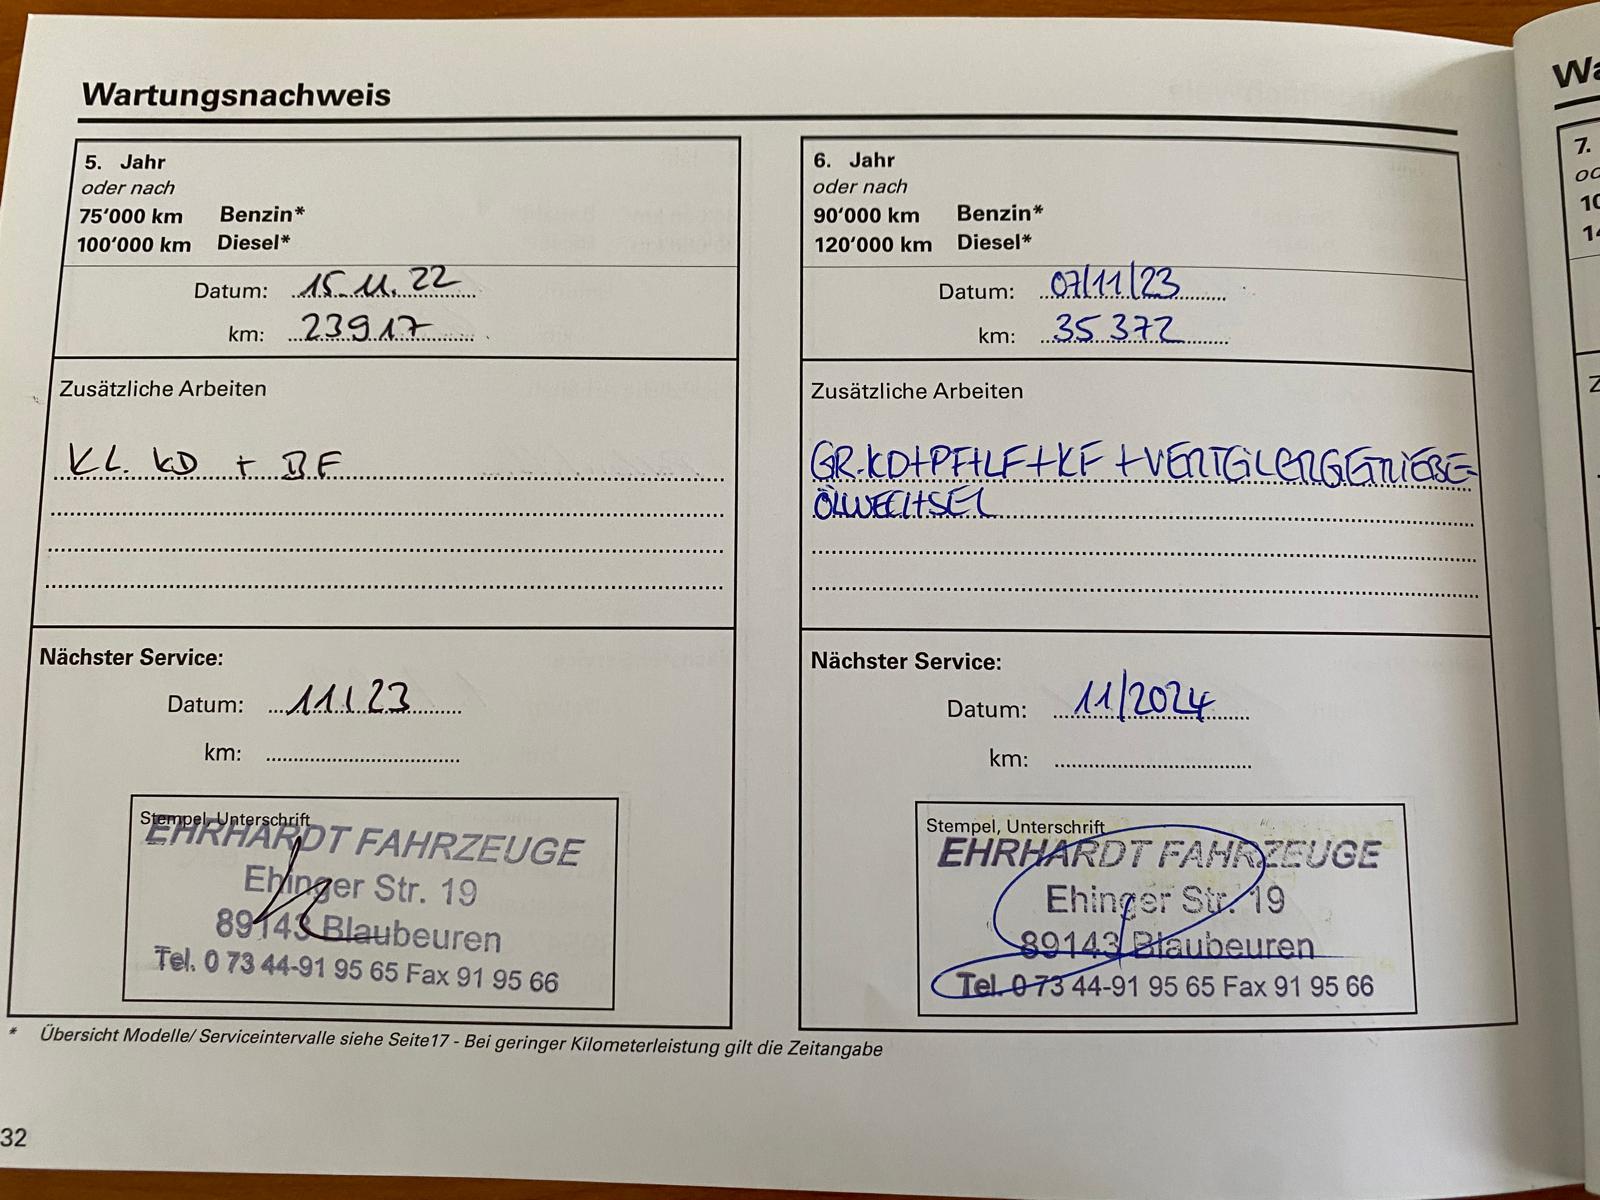 Wartungsnachweis
5. Jahr
oder nach
75'000 km Benzin*
100'000 km Diesel*
Datum: 15.11.22
km: 23917
Zusätzliche Arbeiten
KL. KD + BF
Nächster Service:
Datum: 11/23
km:
Stempel, Unterschrift
EHRHARDT FAHRZEUGE
Ehinger Str. 19
89143 Blaubeuren
Tel. 0 73 44-91 95 65 Fax 91 95 66
6. Jahr
oder nach
90'000 km Benzin*
120'000 km Diesel*
Datum: 07/11/23
km: 35 372
Zusätzliche Arbeiten
GR.KD+PF+LF+KF+VERTEILERGETRIEBE-
ÖLWECHSEL
Nächster Service:
Datum: 11/2024
km:
Stempel, Unterschrift
EHRHARDT FAHRZEUGE
Ehinger Str. 19
89143 Blaubeuren
Tel. 0 73 44-91 95 65 Fax 91 95 66
* Übersicht Modelle/ Serviceintervalle siehe Seite17 - Bei geringer Kilometerleistung gilt die Zeitangabe
32
Wa
7.